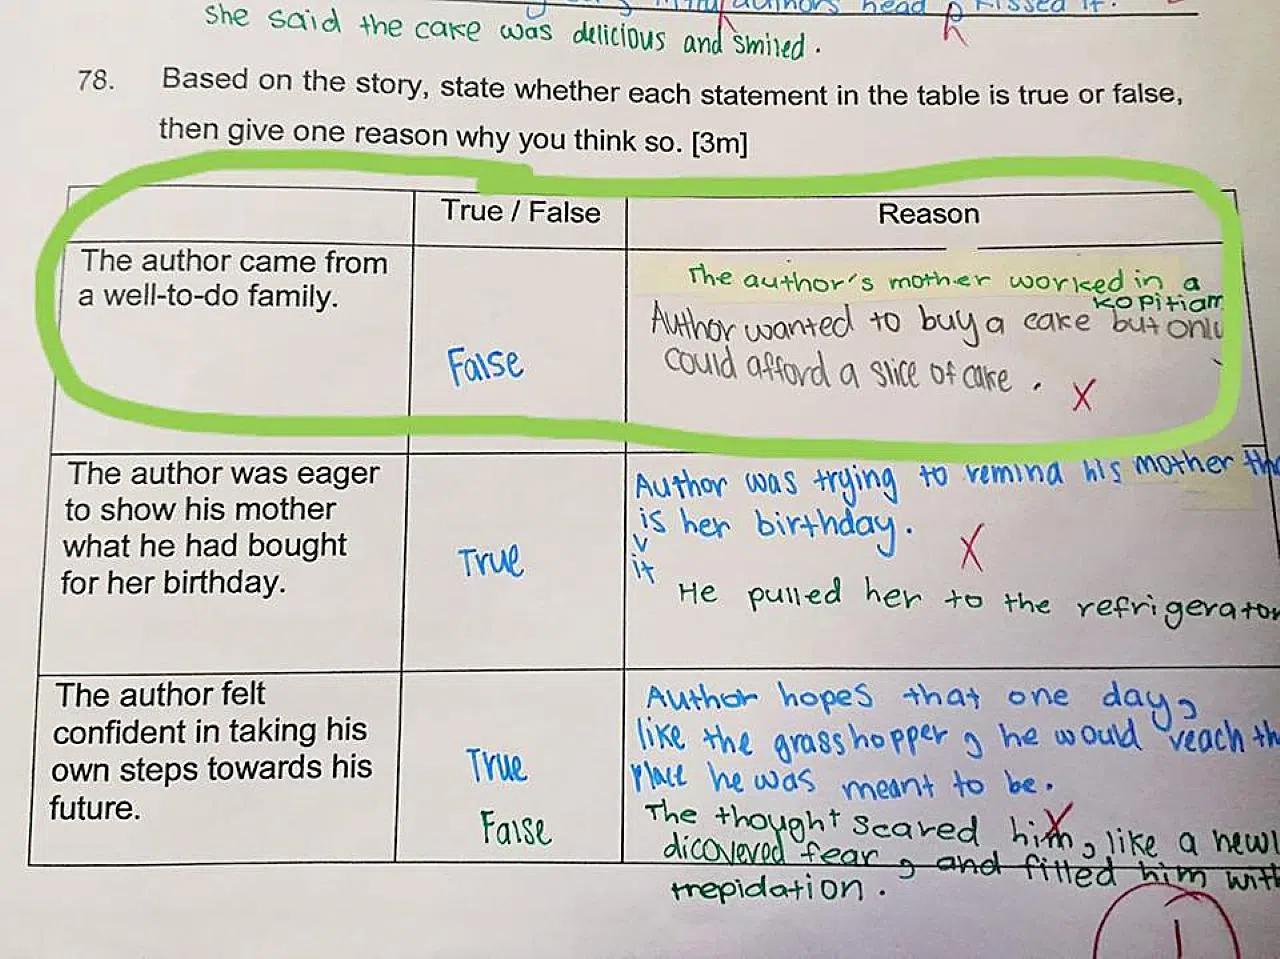 authors head kissed it.
She said the cake was delicious and smiled.
78. Based on the story, state whether each statement in the table is true or false,
then give one reason why you think so. [3m]
True / False
Reason
The author came from
a well-to-do family.
False
The author's mother worked in a
kopitiam
Author wanted to buy a cake but only
could afford a slice of cake.
X
The author was eager
to show his mother
what he had bought
for her birthday.
True
Author was trying to remind his mother
is her birthday.
v
it
X
He pulled her to the refrigerator
The author felt
confident in taking his
own steps towards his
future.
True
False
Author hopes that one day,
like the grasshopper, he would reach
place he was meant to be.
The thought scared him, like a
X
dicovered fear, and filled him
trepidation.
1